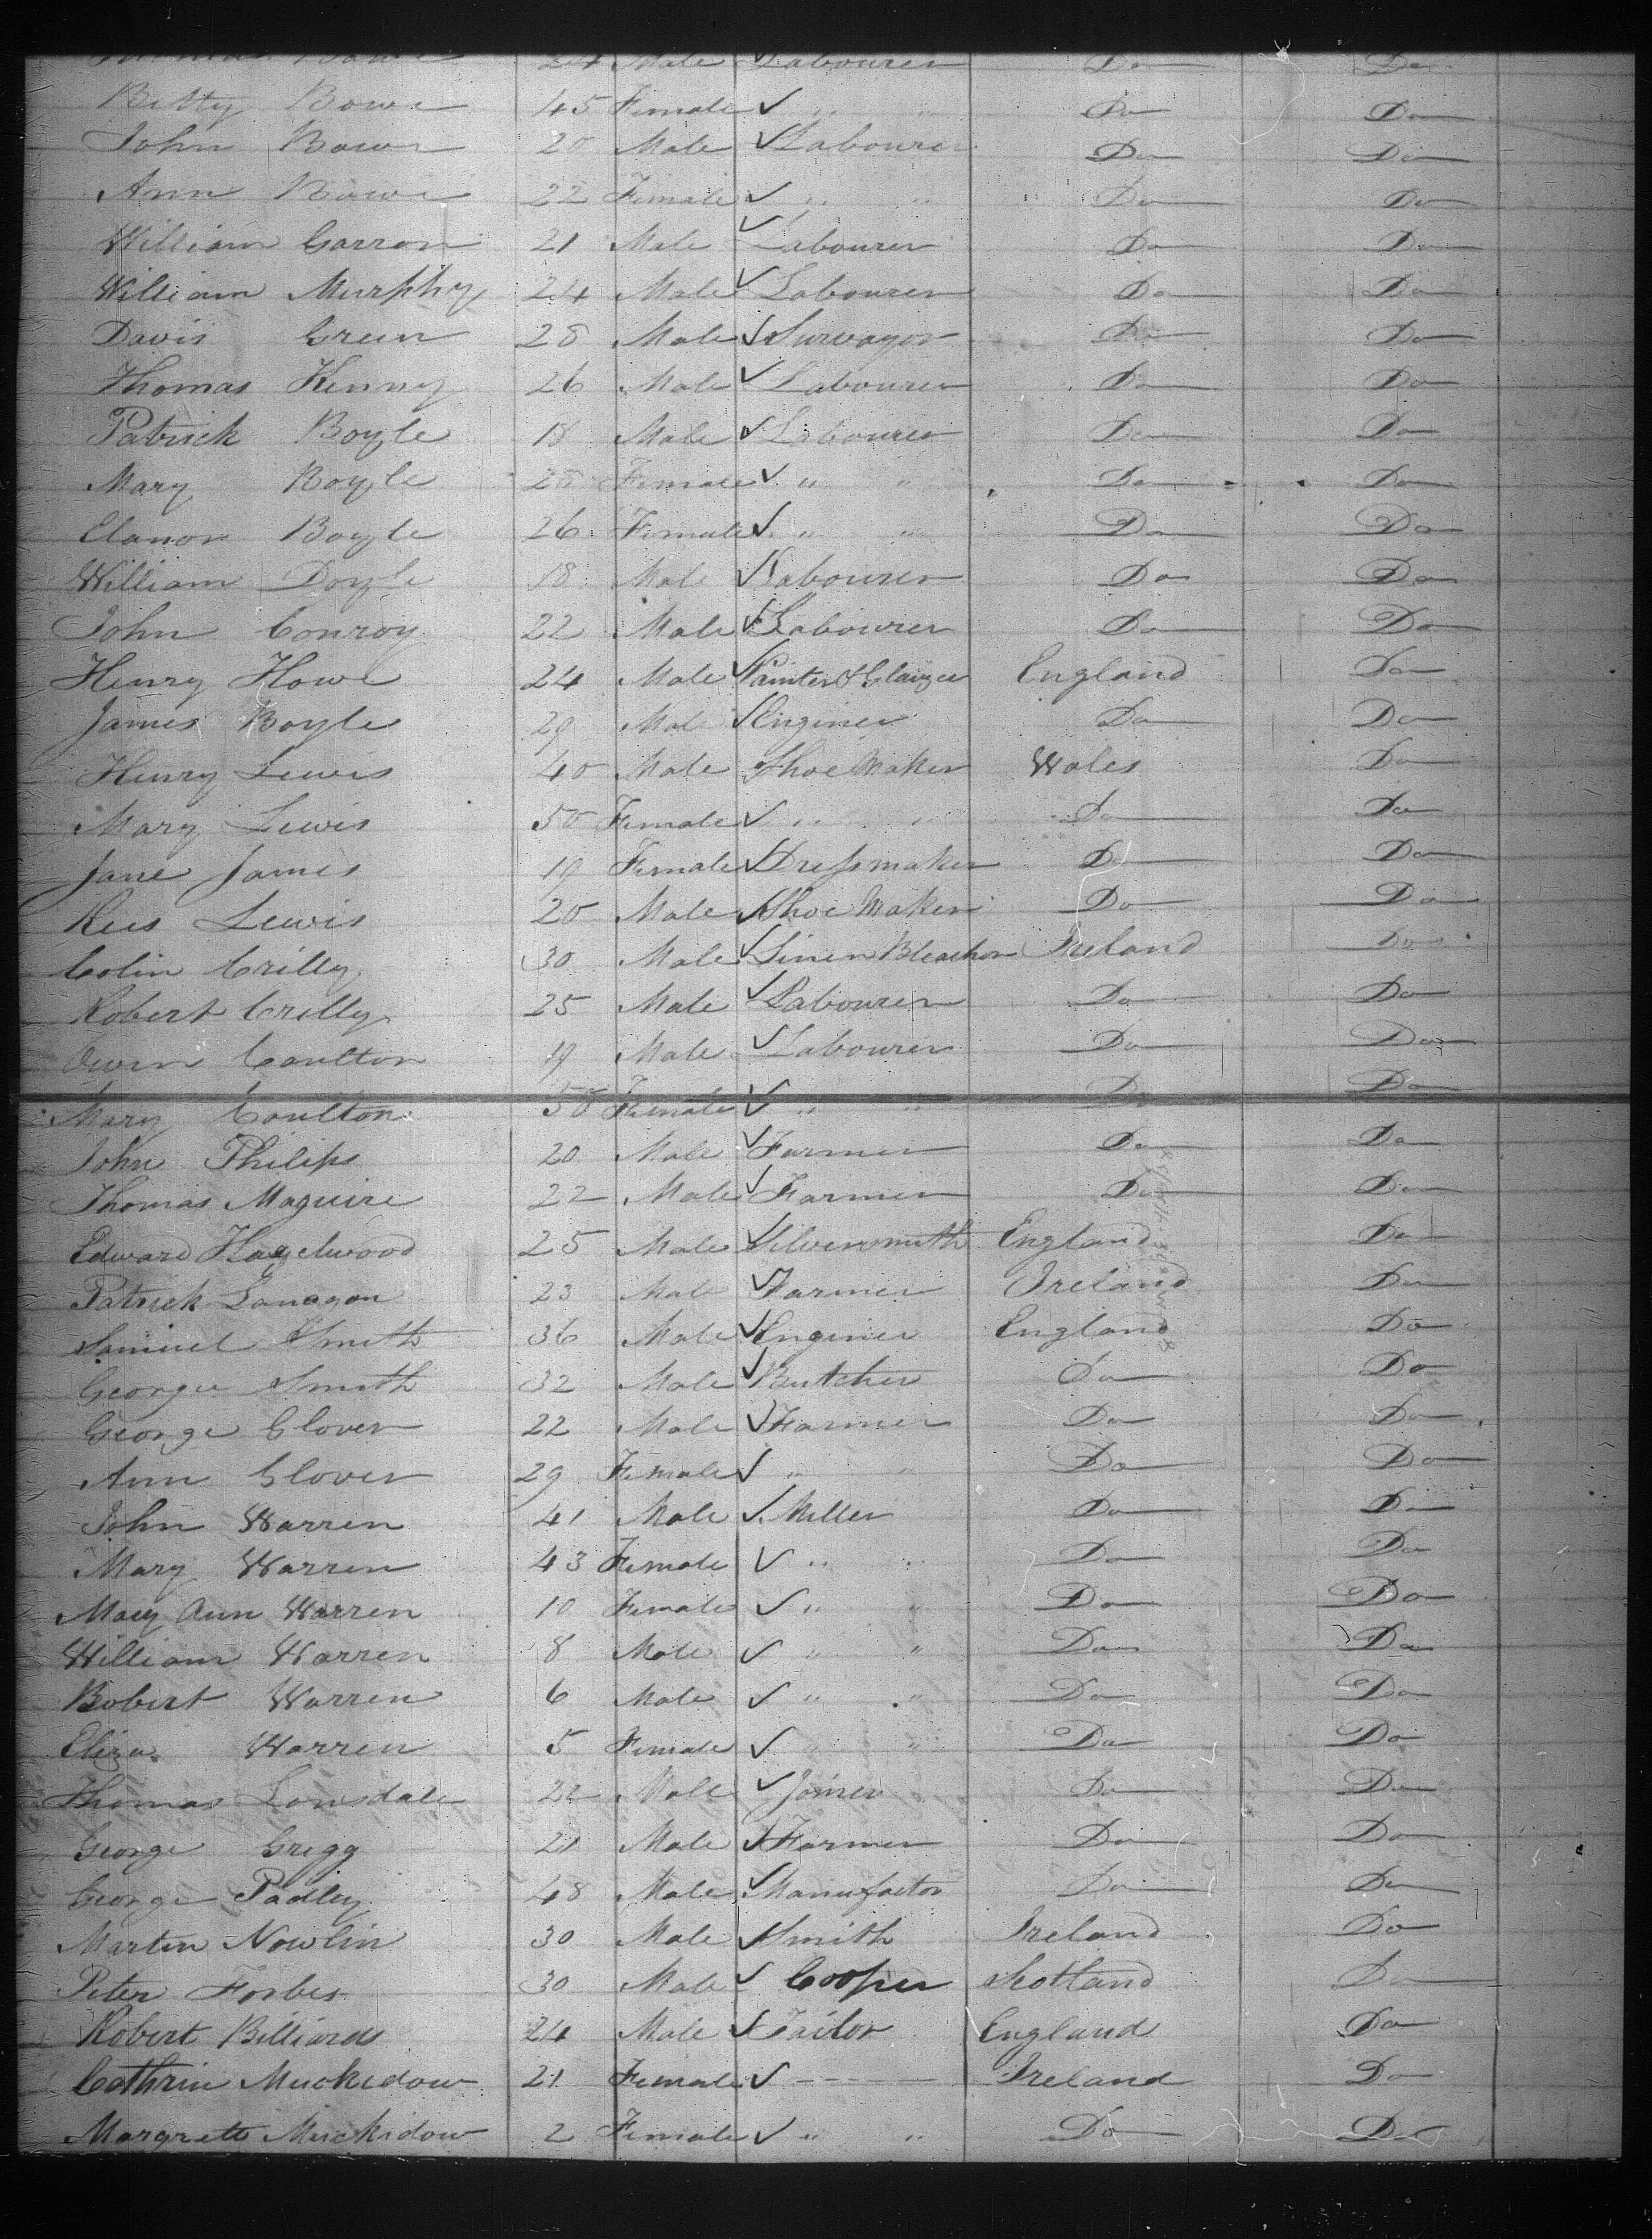 Thomas Bowe 24 Male Labourer Do Do
Betty Bowe 45 Female ✓ " " Do Do
John Bowe 20 Male ✓ Labourer Do Do
Ann Bowe 22 Female ✓ " " Do Do
William Garron 21 Male ✓ Labourer Do Do
William Murphy 24 Male ✓ Labourer Do Do
Davis Green 28 Male ✓ Survayor Do Do
Thomas Kenny 26 Male ✓ Labourer Do Do
Patrick Boyle 18 Male ✓ Labourer Do Do
Mary Boyle Female ✓ " " Do Do
Elanor Boyle 26 Female ✓ " " Do Do
William Doyle 18 Male ✓ Labourer Do Do
John Conroy 22 Male ✓ Labourer Do Do
Henry Howe 24 Male ✓ Painter & Glaizer England Do
James Boyle 29 Male ✓ Enginer Do Do
Henry Lewis 40 Male Shoe Maker Wales Do
Mary Lewis 50 Female ✓ " " Do Do
Jane James 19 Female ✓ Dressmaker Do Do
Rees Lewis 20 Male ✓ Shoe Maker Do Do
Colin Crilly 30 Male ✓ Linen Bleacher Ireland Do
Robert Crilly 25 Male ✓ Labourer Do Do
Owen Coulton 19 Male ✓ Labourer Do Do
Mary Coulton 50 Female ✓ " " Do Do
John Philips 20 Male ✓ Farmer Do Do
Thomas Maguire 22 Male ✓ Farmer Do Do
Edward Hazelwood 25 Male ✓ Silversmith England Do
Patrick Lanagan 23 Male ✓ Farmer Ireland Do
Samuel Smith 36 Male ✓ Enginer England Do
George Smith 32 Male ✓ Butcher Do Do
George Glover 22 Male ✓ Farmer Do Do
Ann Glover 29 Female ✓ " " Do Do
John Warren 41 Male ✓ Miller Do Do
Mary Warren 43 Female ✓ " " Do Do
Mary Ann Warren 10 Female ✓ " " Do Do
William Warren 8 Male ✓ " " Do Do
Robert Warren 6 Male ✓ " " Do Do
Eliza Warren 5 Female ✓ " " Do Do
Thomas Lonsdale 22 Male ✓ Joiner Do Do
George Gregg 21 Male ✓ Farmer Do Do
George Padley 48 Male ✓ Manufactor Do Do
Martin Nowlin 30 Male ✓ Smith Ireland Do
Peter Forbes 30 Male ✓ Cooper Scotland Do
Robert Billiards 24 Male ✓ Tailor England Do
Cathrin Muckedow 21 Female ✓ ---- Ireland Do
Margrett Muckidow 2 Female ✓ " " Do Do